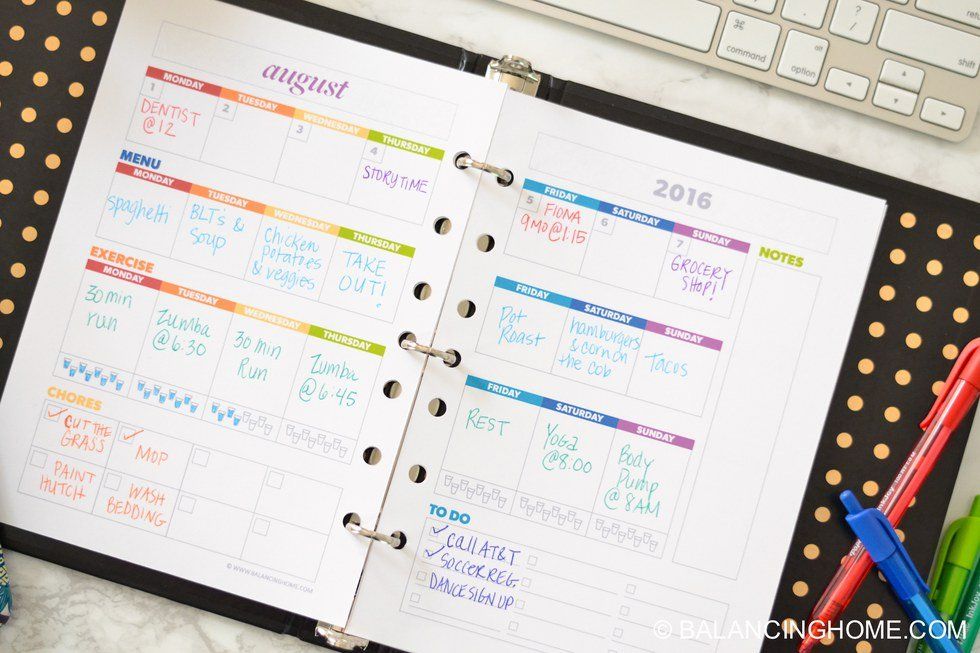 august
MONDAY TUESDAY WEDNESDAY THURSDAY
1 2 3 4
DENTIST
@12
STORYTIME
MENU
MONDAY TUESDAY WEDNESDAY THURSDAY
spaghetti
BLT's &
Soup
Chicken
potatoes
& veggies
TAKE
OUT!
EXERCISE
MONDAY TUESDAY WEDNESDAY THURSDAY
30 min
run
Zumba
@6:30
30 min
Run
Zumba
@6:45
CHORES
CUT THE
GRASS
MOP
PAINT
HUTCH
WASH
BEDDING
© WWW.BALANCINGHOME.COM
2016
FRIDAY SATURDAY SUNDAY
5 6 7
FIONA
9MO@1:15
GROCERY
SHOP!
NOTES
FRIDAY SATURDAY SUNDAY
Pot
Roast
hamburgers
& corn on
the cob
Tacos
FRIDAY SATURDAY SUNDAY
REST
Yoga
@8:00
Body
Pump
@ 8AM
TO DO
CALL AT&T
SOCCER REG.
DANCE SIGN UP
command
option
alt
?
/
InkJoy
© BALANCINGHOME.COM